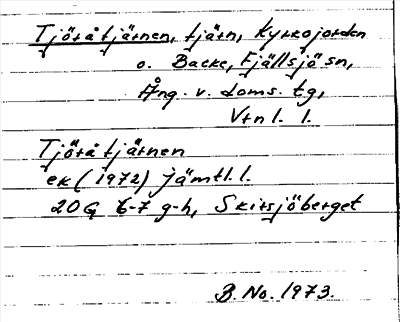 Tjöråtjärnen, tjärn, Kyrkojorden
o. Backe, Fjällsjö sn,
Ång. v. doms. tg,
Vtnl. l.
Tjöråtjärnen
ek (1972) Jämtl. l.
20G 6-7 g-h, Skirsjöberget
B. No. 1973.